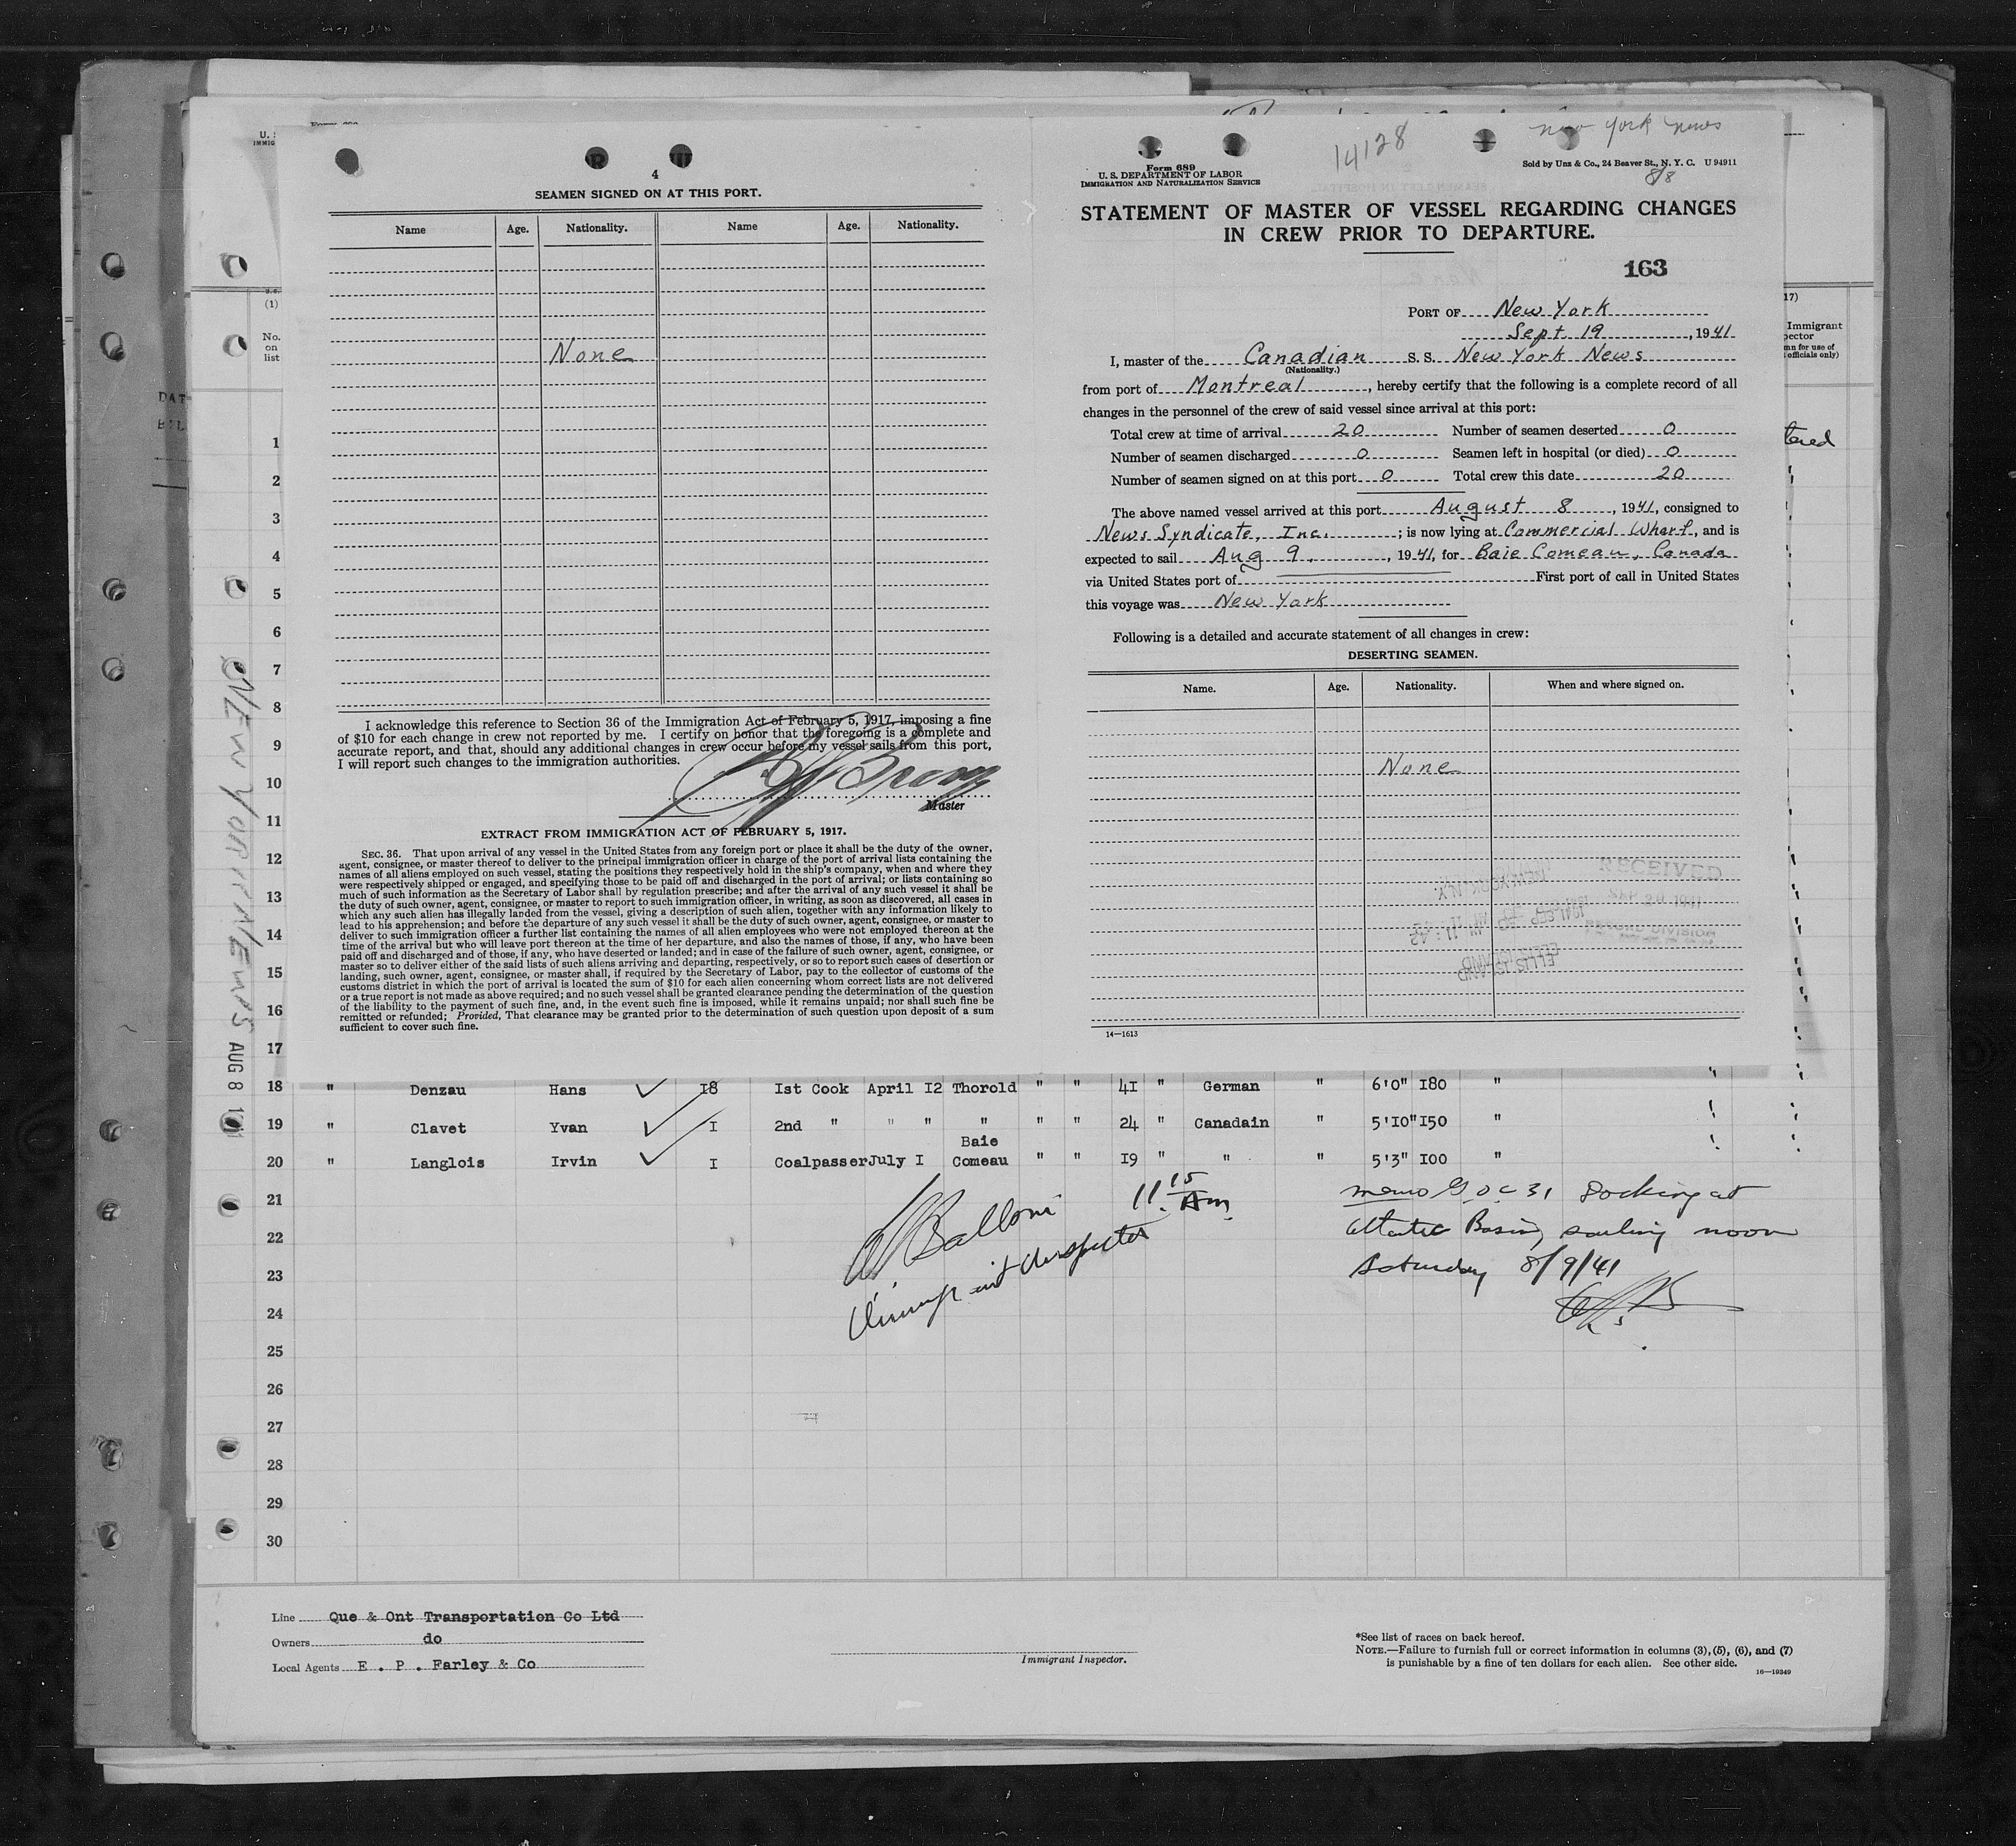 4
SEAMEN SIGNED ON AT THIS PORT.
Name Age. Nationality. Name Age. Nationality.
None
I acknowledge this reference to Section 36 of the Immigration Act of February 5, 1917, imposing a fine
of $10 for each change in crew not reported by me. I certify on honor that the foregoing is a complete and
accurate report, and that, should any additional changes in crew occur before my vessel sails from this port,
I will report such changes to the immigration authorities.
Master
EXTRACT FROM IMMIGRATION ACT OF FEBRUARY 5, 1917.
SEC. 36. That upon arrival of any vessel in the United States from any foreign port or place it shall be the duty of the owner,
agent, consignee, or master thereof to deliver to the principal immigration officer in charge of the port of arrival lists containing the
names of all aliens employed on such vessel, stating the positions they respectively hold in the ship's company, when and where they
were respectively shipped or engaged, and specifying those to be paid off and discharged in the port of arrival; or lists containing so
much of such information as the Secretary of Labor shall by regulation prescribe; and after the arrival of any such vessel it shall be
the duty of such owner, agent, consignee, or master to report to such immigration officer, in writing, as soon as discovered, all cases in
which any such alien has illegally landed from the vessel, giving a description of such alien, together with any information likely to
lead to his apprehension; and before the departure of any such vessel it shall be the duty of such owner, agent, consignee, or master to
deliver to such immigration officer a further list containing the names of all alien employees who were not employed thereon at the
time of the arrival but who will leave port thereon at the time of her departure, and also the names of those, if any, who have been
paid off and discharged and of those, if any, who have deserted or landed; and in case of the failure of such owner, agent, consignee, or
master so to deliver either of the said lists of such aliens arriving and departing, respectively, or so to report such cases of desertion or
landing, such owner, agent, consignee, or master shall, if required by the Secretary of Labor, pay to the collector of customs of the
customs district in which the port of arrival is located the sum of $10 for each alien concerning whom correct lists are not delivered
or a true report is not made as above required; and no such vessel shall be granted clearance pending the determination of the question
of the liability to the payment of such fine, and, in the event such fine is imposed, while it remains unpaid; nor shall such fine be
remitted or refunded; Provided, That clearance may be granted prior to the determination of such question upon deposit of a sum
sufficient to cover such fine.
14128
new york news
8/8
Form 689
U. S. DEPARTMENT OF LABOR
IMMIGRATION AND NATURALIZATION SERVICE
Sold by Unz & Co., 24 Beaver St., N. Y. C. U 94911
STATEMENT OF MASTER OF VESSEL REGARDING CHANGES
IN CREW PRIOR TO DEPARTURE.
163
PORT OF New York
Sept 19, 1941
I, master of the Canadian S. S. New York News
(Nationality.)
from port of Montreal, hereby certify that the following is a complete record of all
changes in the personnel of the crew of said vessel since arrival at this port:
Total crew at time of arrival 20 Number of seamen deserted 0
Number of seamen discharged 0 Seamen left in hospital (or died) 0
Number of seamen signed on at this port 0 Total crew this date 20
The above named vessel arrived at this port August 8, 1941, consigned to
News Syndicate, Inc.; is now lying at Commercial Wharf, and is
expected to sail Aug 9, 1941, for Baie Comeau, Canada
via United States port of First port of call in United States
this voyage was New York
Following is a detailed and accurate statement of all changes in crew:
DESERTING SEAMEN.
Name. Age. Nationality. When and where signed on.
None
RECEIVED
SEP 20 1941
RECORD DIVISION
ELLIS ISLAND
14—1613
(1)
No.
on
list
1
2
3
4
5
6
7
8
9
10
11
12
13
14
15
16
17
NEW YORK NEWS AUG 8
18 " Denzau Hans 18 Ist Cook April I2 Thorold " " 4I " German " 6'0" I80 "
19 " Clavet Yvan I 2nd " " " " " " 24 " Canadain " 5'I0" I50 "
Baie
20 " Langlois Irvin I Coalpasser July I Comeau " " I9 " " " 5'3" I00 "
21
22
23
24
25
26
27
28
29
30
11 15 Am
Balloni
Immigrant Inspector
memo docking at
Atlantic Basin, sailing noon
Saturday 8/9/41
Line Que & Ont Transportation Co Ltd
Owners do
Local Agents E . P . Farley & Co
Immigrant Inspector.
*See list of races on back hereof.
NOTE.—Failure to furnish full or correct information in columns (3), (5), (6), and (7)
is punishable by a fine of ten dollars for each alien. See other side.
16—19349